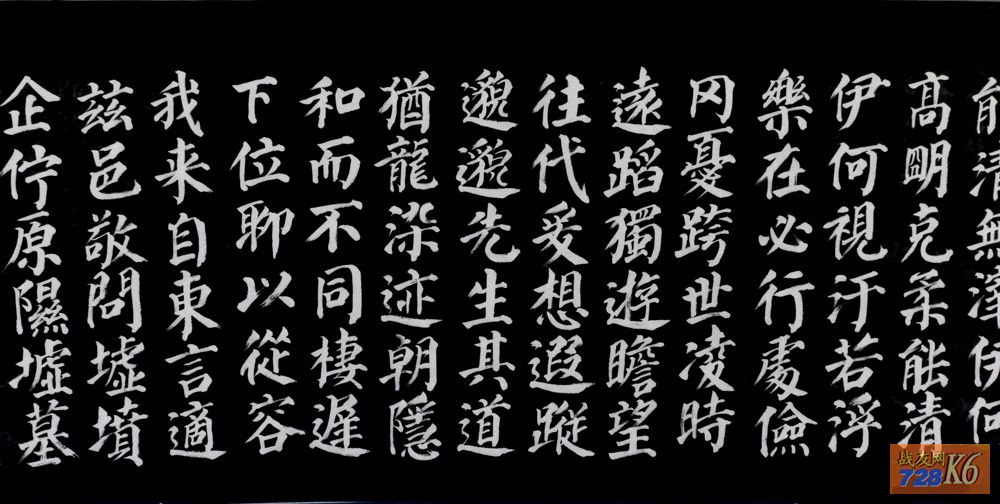 能清無滓伊何
髙明克柔能清
伊何視汙若浮
樂在必行處儉
冈憂跨世凌時
遠蹈獨遊瞻望
往代爰想遐蹤
邈邈先生其道
猶龍染迹朝隱
和而不同棲遲
下位聊以從容
我来自東言適
茲邑敬問墟墳
企佇原隰墟墓
战友网
728 K6